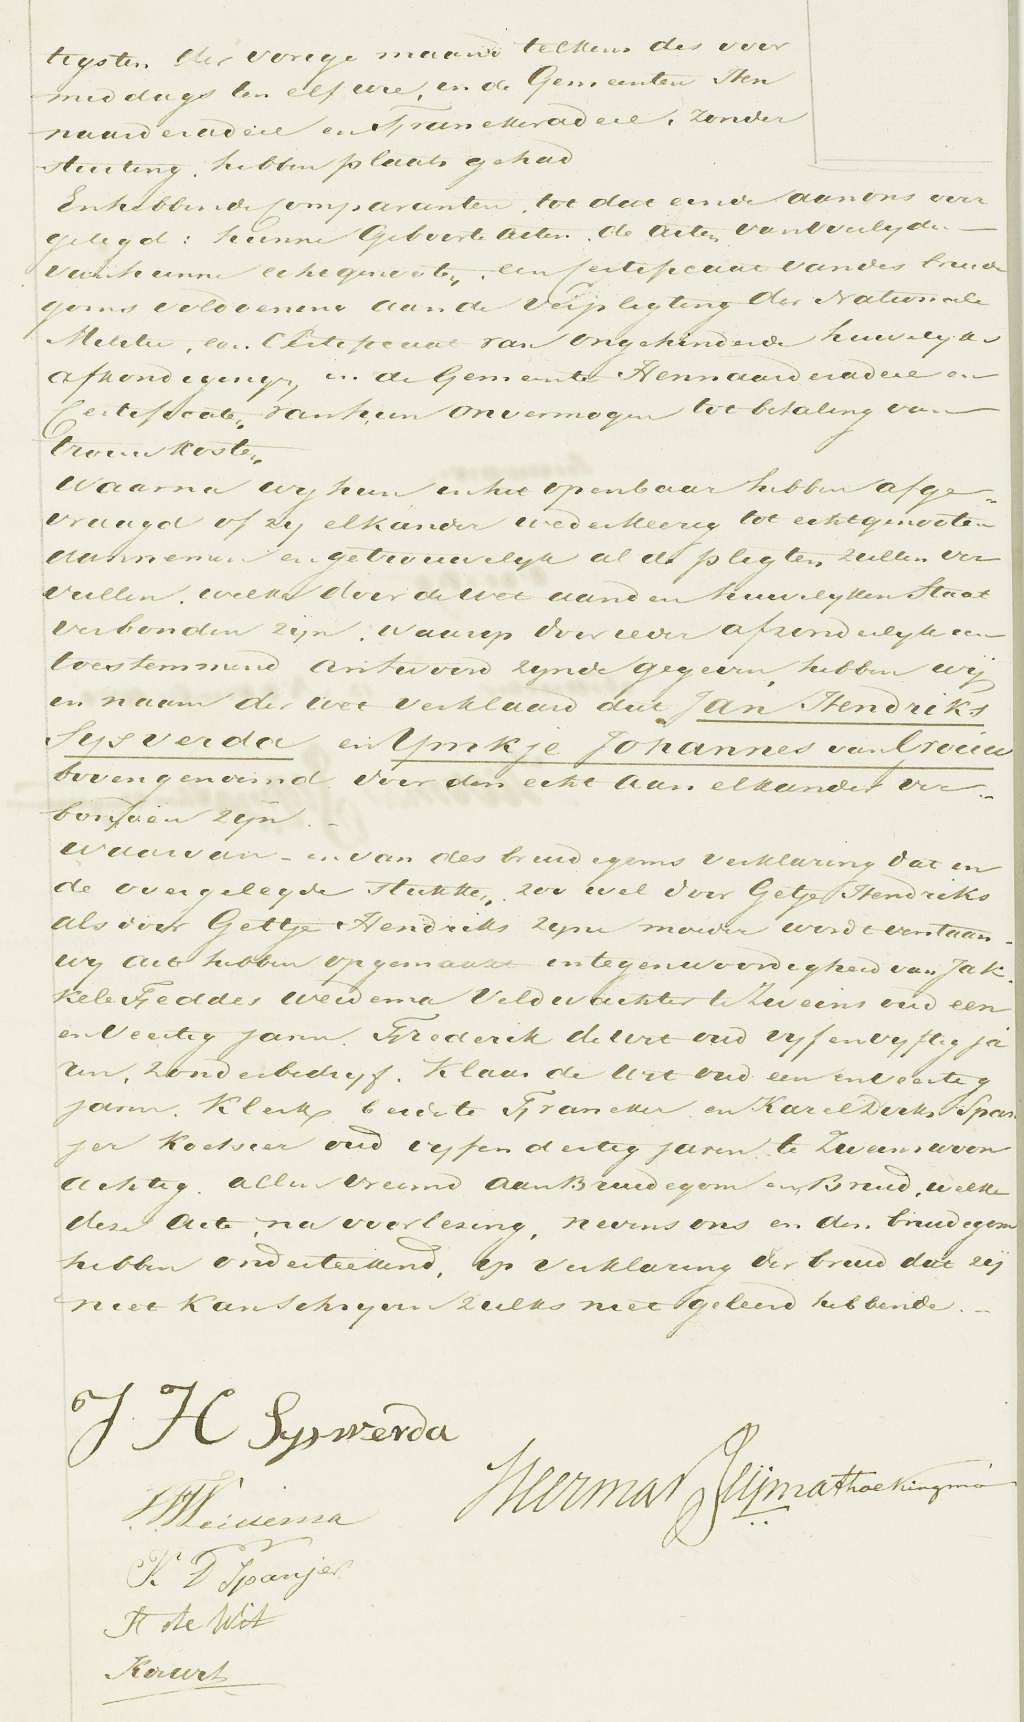 tigsten der vorige maand telkens des voor
middags ten elf ure, in de Gemeenten Hen
naarderadeel en Franekeradeel, zonder
stuiting, hebben plaats gehad
En hebbende Comparanten, tot dat einde aan ons over
gelegd: hunne Geboorte Acten, de Acten van overlyden
van hunne echtgenooten, een Certificaat van des bruide
goms voldoening aan de verpligting der Nationale
Militie, een Certificaat van ongehinderde huwelyks
afkondiging, in de Gemeente Hennaarderadeel en
Certificaten van hun onvermogen tot betaling van
trouwkosten
Waarna wij hun in het openbaar hebben afge-
vraagd of zij elkander wederkeerig tot echtgenooten
aannemen en getrouwelyk al de pligten zullen ver
vullen, welke door de wet aan den huwelyken Staat
verbonden zijn, waarop door ieder afzonderlyk een
toestemmend antwoord zynde gegeven, hebben wij
in naam der wet verklaard dat Jan Hendriks
Sysverda en Ymkje Johannes van Crouw
bovengenoemd door den echt aan elkander ver-
bonden zijn.-
Waarvan - en van des bruidegoms verklaring dat in
de overgelegde stukken, zoo wel door Getje Hendriks
als door Gettje Hendriks zyne moeder wordt verstaan-
wy acte hebben opgemaakt in tegenwoordigheid van Jak-
kele Feddes Weidema Veldwachter te Zweins oud een
en veertig jaren, Frederik de Wit oud vyf en vyftig ja
ren, zonder bedryf, Klaas de Wit oud een en veertig
jaren, Klerk, beide te Franeker en Karel Dirks Span
jer Koetsier oud vyf en dertig jaren te Zweins woon
achtig, allen vreemd aan Bruidegom en Bruid, welke
deze Acte, na voorlezing, nevens ons en den bruidegom
hebben onderteekend, op verklaring der bruid dat zij
niet kan schryven zulks niet geleerd hebbende.-
J H Syswerda
Herman Zijma thoe Kingma
J. F. Weidema
K D Spanjer
F de Wit
K de Wit